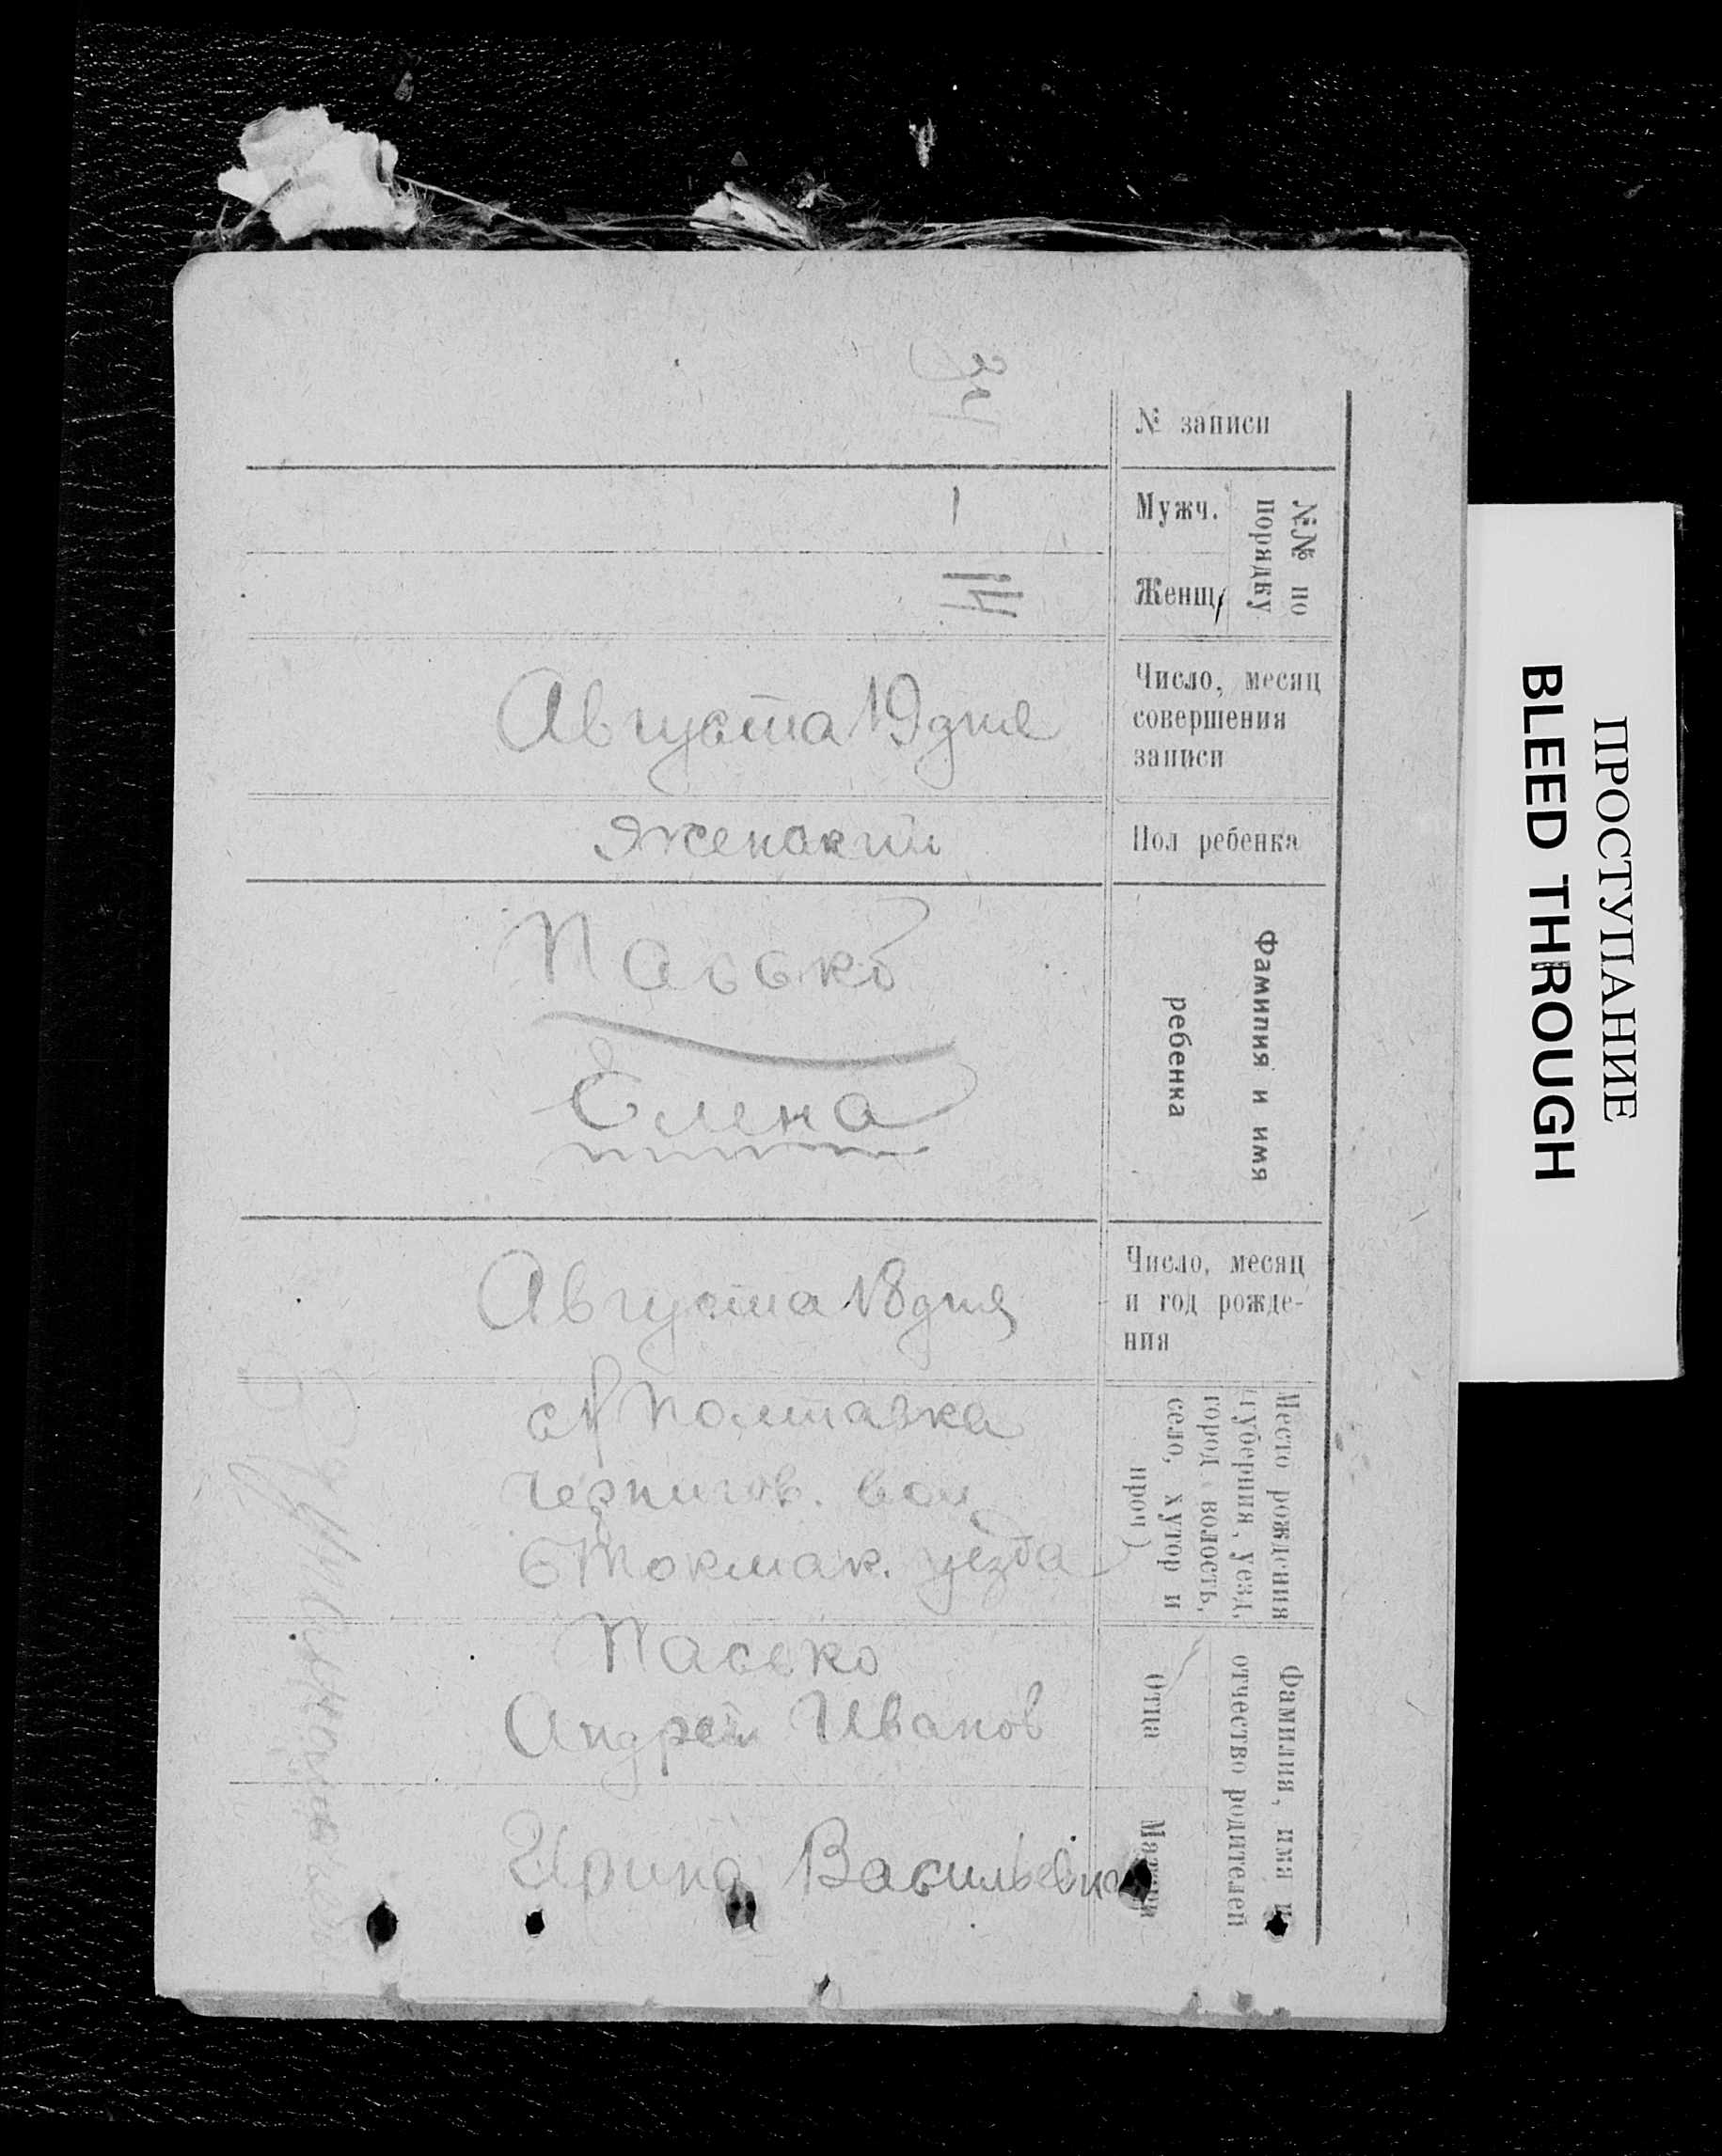 № записи
Мужч.
Женщ.
№№ по
порядку
Августа 19 дня
Число, месяц
совершения
записи
женский
Пол ребенка
Пасько
Елена
Фамилия и имя
ребенка
Августа 18 дня
Число, месяц
и год рожде-
ния
с. Полтавка
Чернигов. вол
Б Токмак. уезда
Место рождения
(губерния, уезд,
город, волость,
село, хутор и
проч)
Пасько
Андрей Иванов
Отца
Ирина Васильевна
Матери
Фамилия, имя и
отчество родителей
ПРОСТУПАНИЕ
BLEED THROUGH